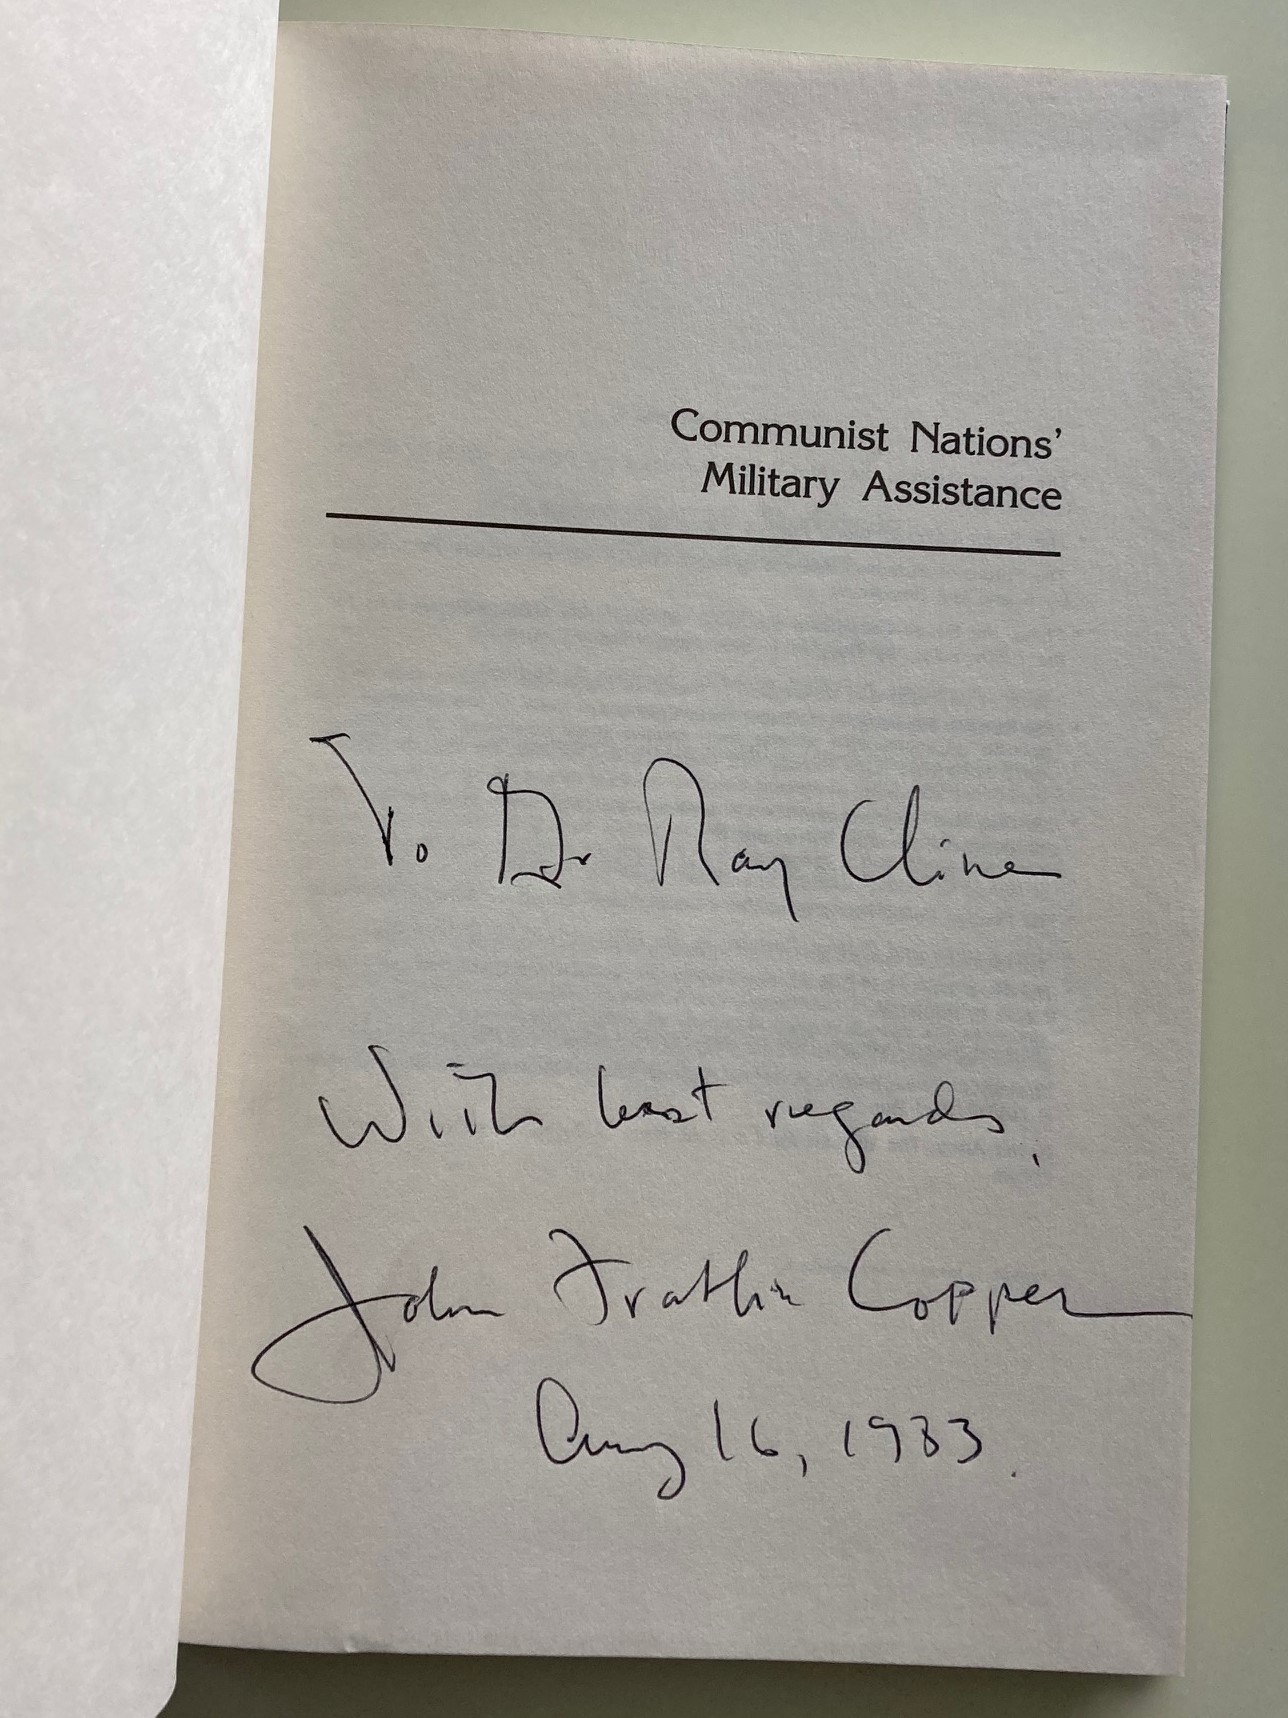 Communist Nations'
Military Assistance
To Dr Ray Cline
With best regards,
John Franklin Copper
Aug 16, 1983.